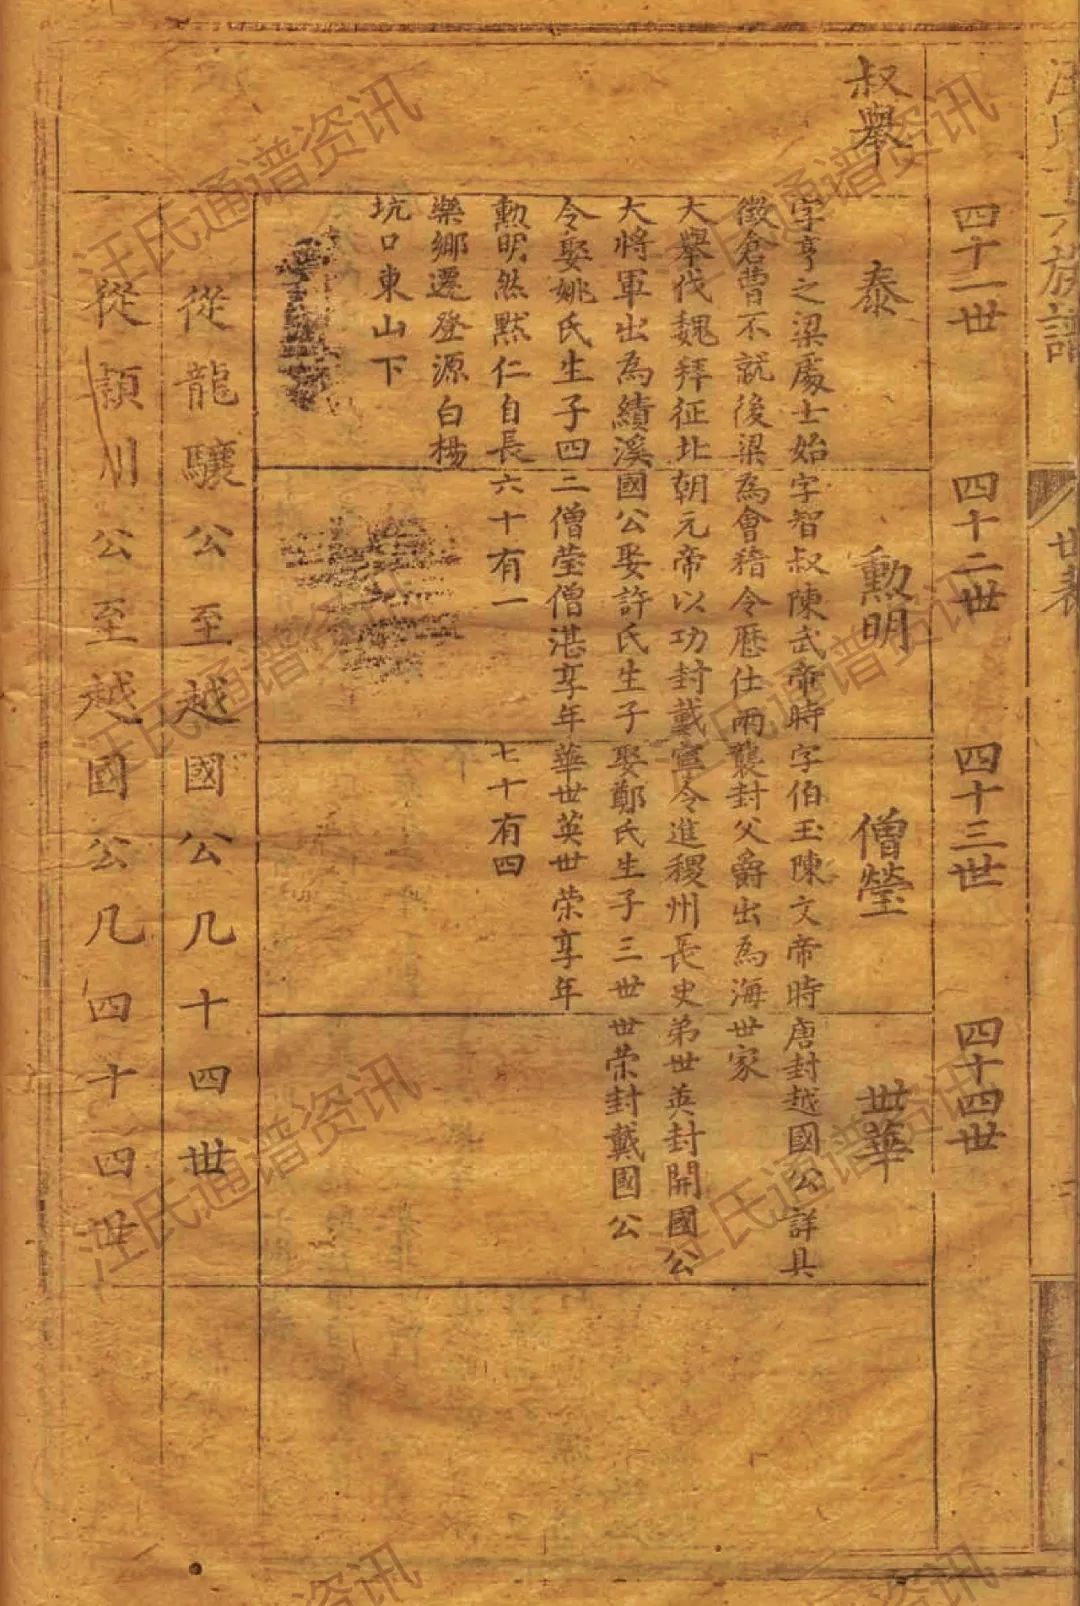 族譜
世表
四十一世
四十二世
四十三世
四十四世
叔舉
泰
字亨之梁處士始
徵倉曹不就後梁
大舉伐魏拜征北
大將軍出為績溪
令娶姚氏生子四
勲明然黙仁自長
樂鄉遷登源白楊
坑口東山下
勲明
字智叔陳武帝時
為會稽令歴仕兩
朝元帝以功封戴
國公娶許氏生子
二僧瑩僧湛享年
六十有一
僧瑩
字伯玉陳文帝時
襲封父爵出為海
寧令進稷州長史
娶鄭氏生子三世
華世英世荣享年
七十有四
世華
唐封越國公詳具
世家
弟世英封開國公
世荣封戴國公
從龍驤公至越國公凡十四世
從頴川公至越國公凡四十四世
汪氏通谱资讯
汪氏通谱资讯
汪氏通谱资讯
汪氏通谱资讯
汪氏通谱资讯
汪氏通谱资讯